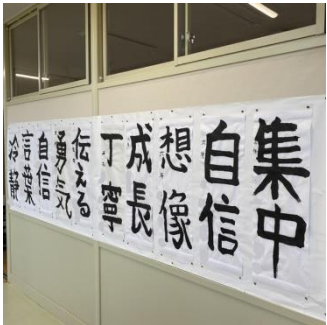 集中
自信
想像
成長
丁寧
伝える
勇気
自信
言葉
冷静